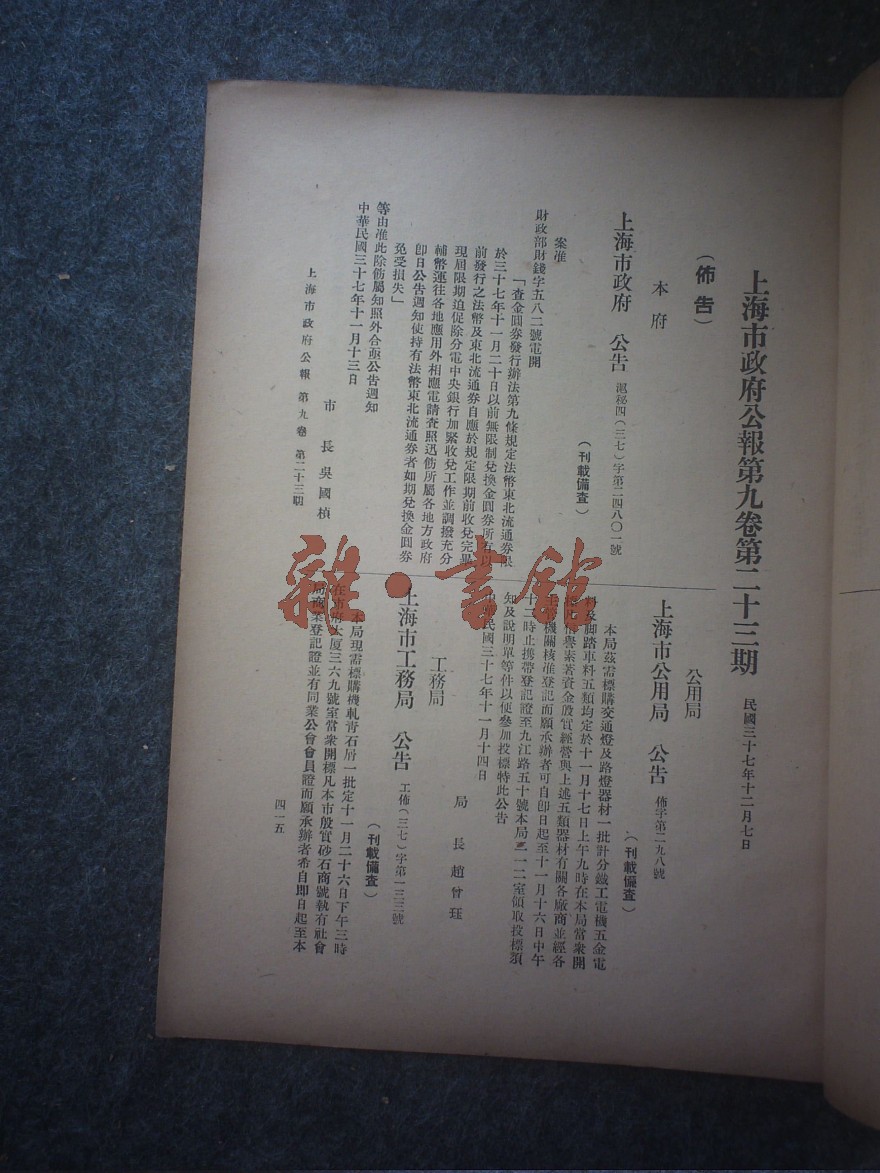 上海市政府公報第九卷第二十三期
民國三十七年十二月七日
（佈告）
本府
上海市政府　公告
滬秘四（三七）字第二四八〇一號
（刊載備查）
案准
財政部財錢字五八二號電開
「查金圓券發行辦法第九條規定法幣東北流通券限
於三十七年十一月二十日以前無限制兌換金圓券所有以
前發行之法幣及東北流通券自應於規定限期前收兌完畢
現屆限期迫促除分電中央銀行加緊收兌工作並調撥充分
輔幣運往各地應用外相應電請查照迅飭所屬各地方政府
卽日公告週知使持有法幣東北流通券者如期兌換金圓券
免受損失」
等由准此除飭屬知照外合亟公告週知
中華民國三十七年十一月十三日
市長吳國楨
公用局
上海市公用局　公告
佈字第二九八號
（刊載備查）
本局茲需標購交通燈及路燈器材一批計分鐵工電機五金電
料及脚踏車料五類均定於十一月十七日上午九時在本局當衆開
信譽素著資金殷實經營與上述五類器材有關各廠商並經各
主管機關核准登記而願承辦者可自卽日起至十一月十六日中午
十二時止携帶登記證至九江路五十號本局二一二室領取投標須
知及說明單等件以便參加投標特此公告
民國三十七年十一月十四日
局長趙曾珏
工務局
上海市工務局　公告
工佈（三七）字第一三三號
（刊載備查）
本局現需標購機軋靑石屑一批定十一月二十六日下午三時
在市府大厦三六九號室當衆開標凡本市殷實砂石商號執有社會
局商業登記證並有同業公會會員證而願承辦者希自卽日起至本
上海市政府公報　第九卷　第二十三期
四一五
雜·書館